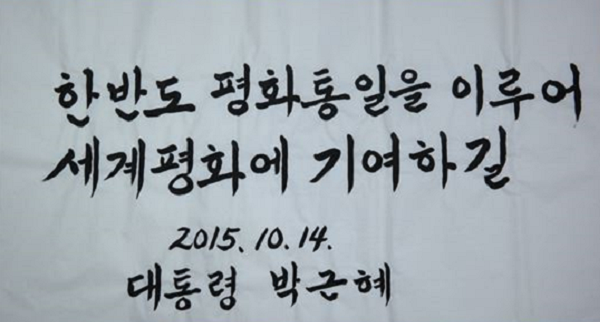 한반도 평화통일을 이루어
세계평화에 기여하길
2015. 10. 14.
대통령 박근혜